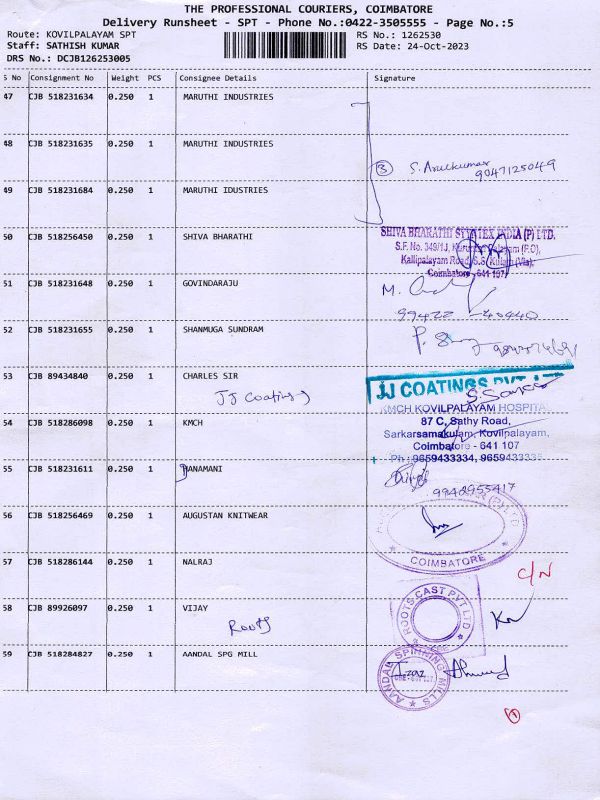 THE PROFESSIONAL COURIERS, COIMBATORE
Delivery Runsheet - SPT - Phone No.:0422-3505555 - Page No.:5
Route: KOVILPALAYAM SPT
RS No.: 1262530
Staff: SATHISH KUMAR
RS Date: 24-Oct-2023
DRS No.: DCJB126253005
S No Consignment No Weight PCS Consignee Details Signature
47 CJB 518231634 0.250 1 MARUTHI INDUSTRIES
48 CJB 518231635 0.250 1 MARUTHI INDUSTRIES
3 S. Arulkumar
9047125049
49 CJB 518231684 0.250 1 MARUTHI IDUSTRIES
50 CJB 518256450 0.250 1 SHIVA BHARATHI
SHIVA BHARATHI INDIA (P) LTD.
S.F. No. 349/1J, (P.O),
Kallipalayam Road, S.S. Kulam (Via),
Coimbatore - 641 107
51 CJB 518231648 0.250 1 GOVINDARAJU
M.
99422 - 40440
52 CJB 518231655 0.250 1 SHANMUGA SUNDRAM
P.
53 CJB 89434840 0.250 1 CHARLES SIR
JJ Coatings
JJ COATINGS PVT LTD
54 CJB 518286098 0.250 1 KMCH
KMCH KOVILPALAYAM HOSPITAL
87 C, Sathy Road,
Sarkarsamakulam, Kovilpalayam,
Coimbatore - 641 107
Ph : 9659433334, 9659433335
55 CJB 518231611 0.250 1 PANAMANI
9942955417
56 CJB 518256469 0.250 1 AUGUSTAN KNITWEAR
COIMBATORE
57 CJB 518286144 0.250 1 NALRAJ
C/N
58 CJB 89926097 0.250 1 VIJAY
Roots
ROOTS CAST PVT LTD
59 CJB 518284827 0.250 1 AANDAL SPG MILL
AANDAL SPINNING MILLS